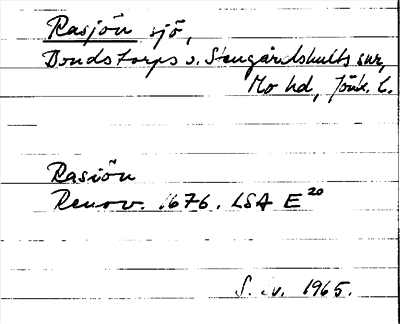 Rasjön sjö,
Bondstorps o. Stengårdshults snr,
Mo hd, Jönk. l.
Rasiön
Renov. 1676. LSA E 20
S. v. 1965.